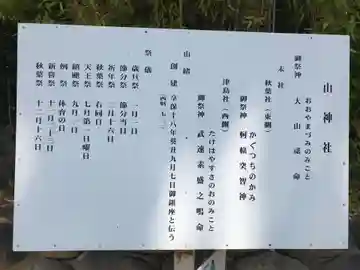 山神社
おおやまづみのみこと
御祭神 大山祇命
末社
秋葉社(東側)
かぐつちのかみ
御祭神 軻遇突智神
津島社(西側)
たけはやすさのおのみこと
御祭神 武速素盞之鳴命
由緒
創建 享保十八年癸丑九月七日御鎮座と伝う
祭儀
歳旦祭 一月一日
節分祭 節分当日
祈年祭 二月十六日
秋葉祭 右同日
天王祭 七月第一日曜日
鎮祖祭 九月一日
例祭 体育の日
新嘗祭 十一月二十三日
秋葉祭 十二月十六日